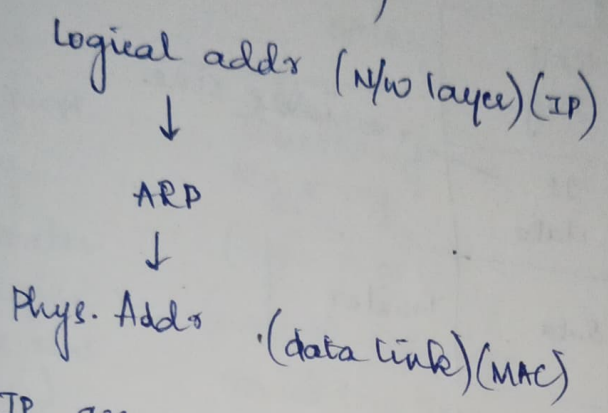 Logical addr (N/w layer) (IP)
↓
ARP
↓
Phys. Addr . (data link) (MAC)
IP